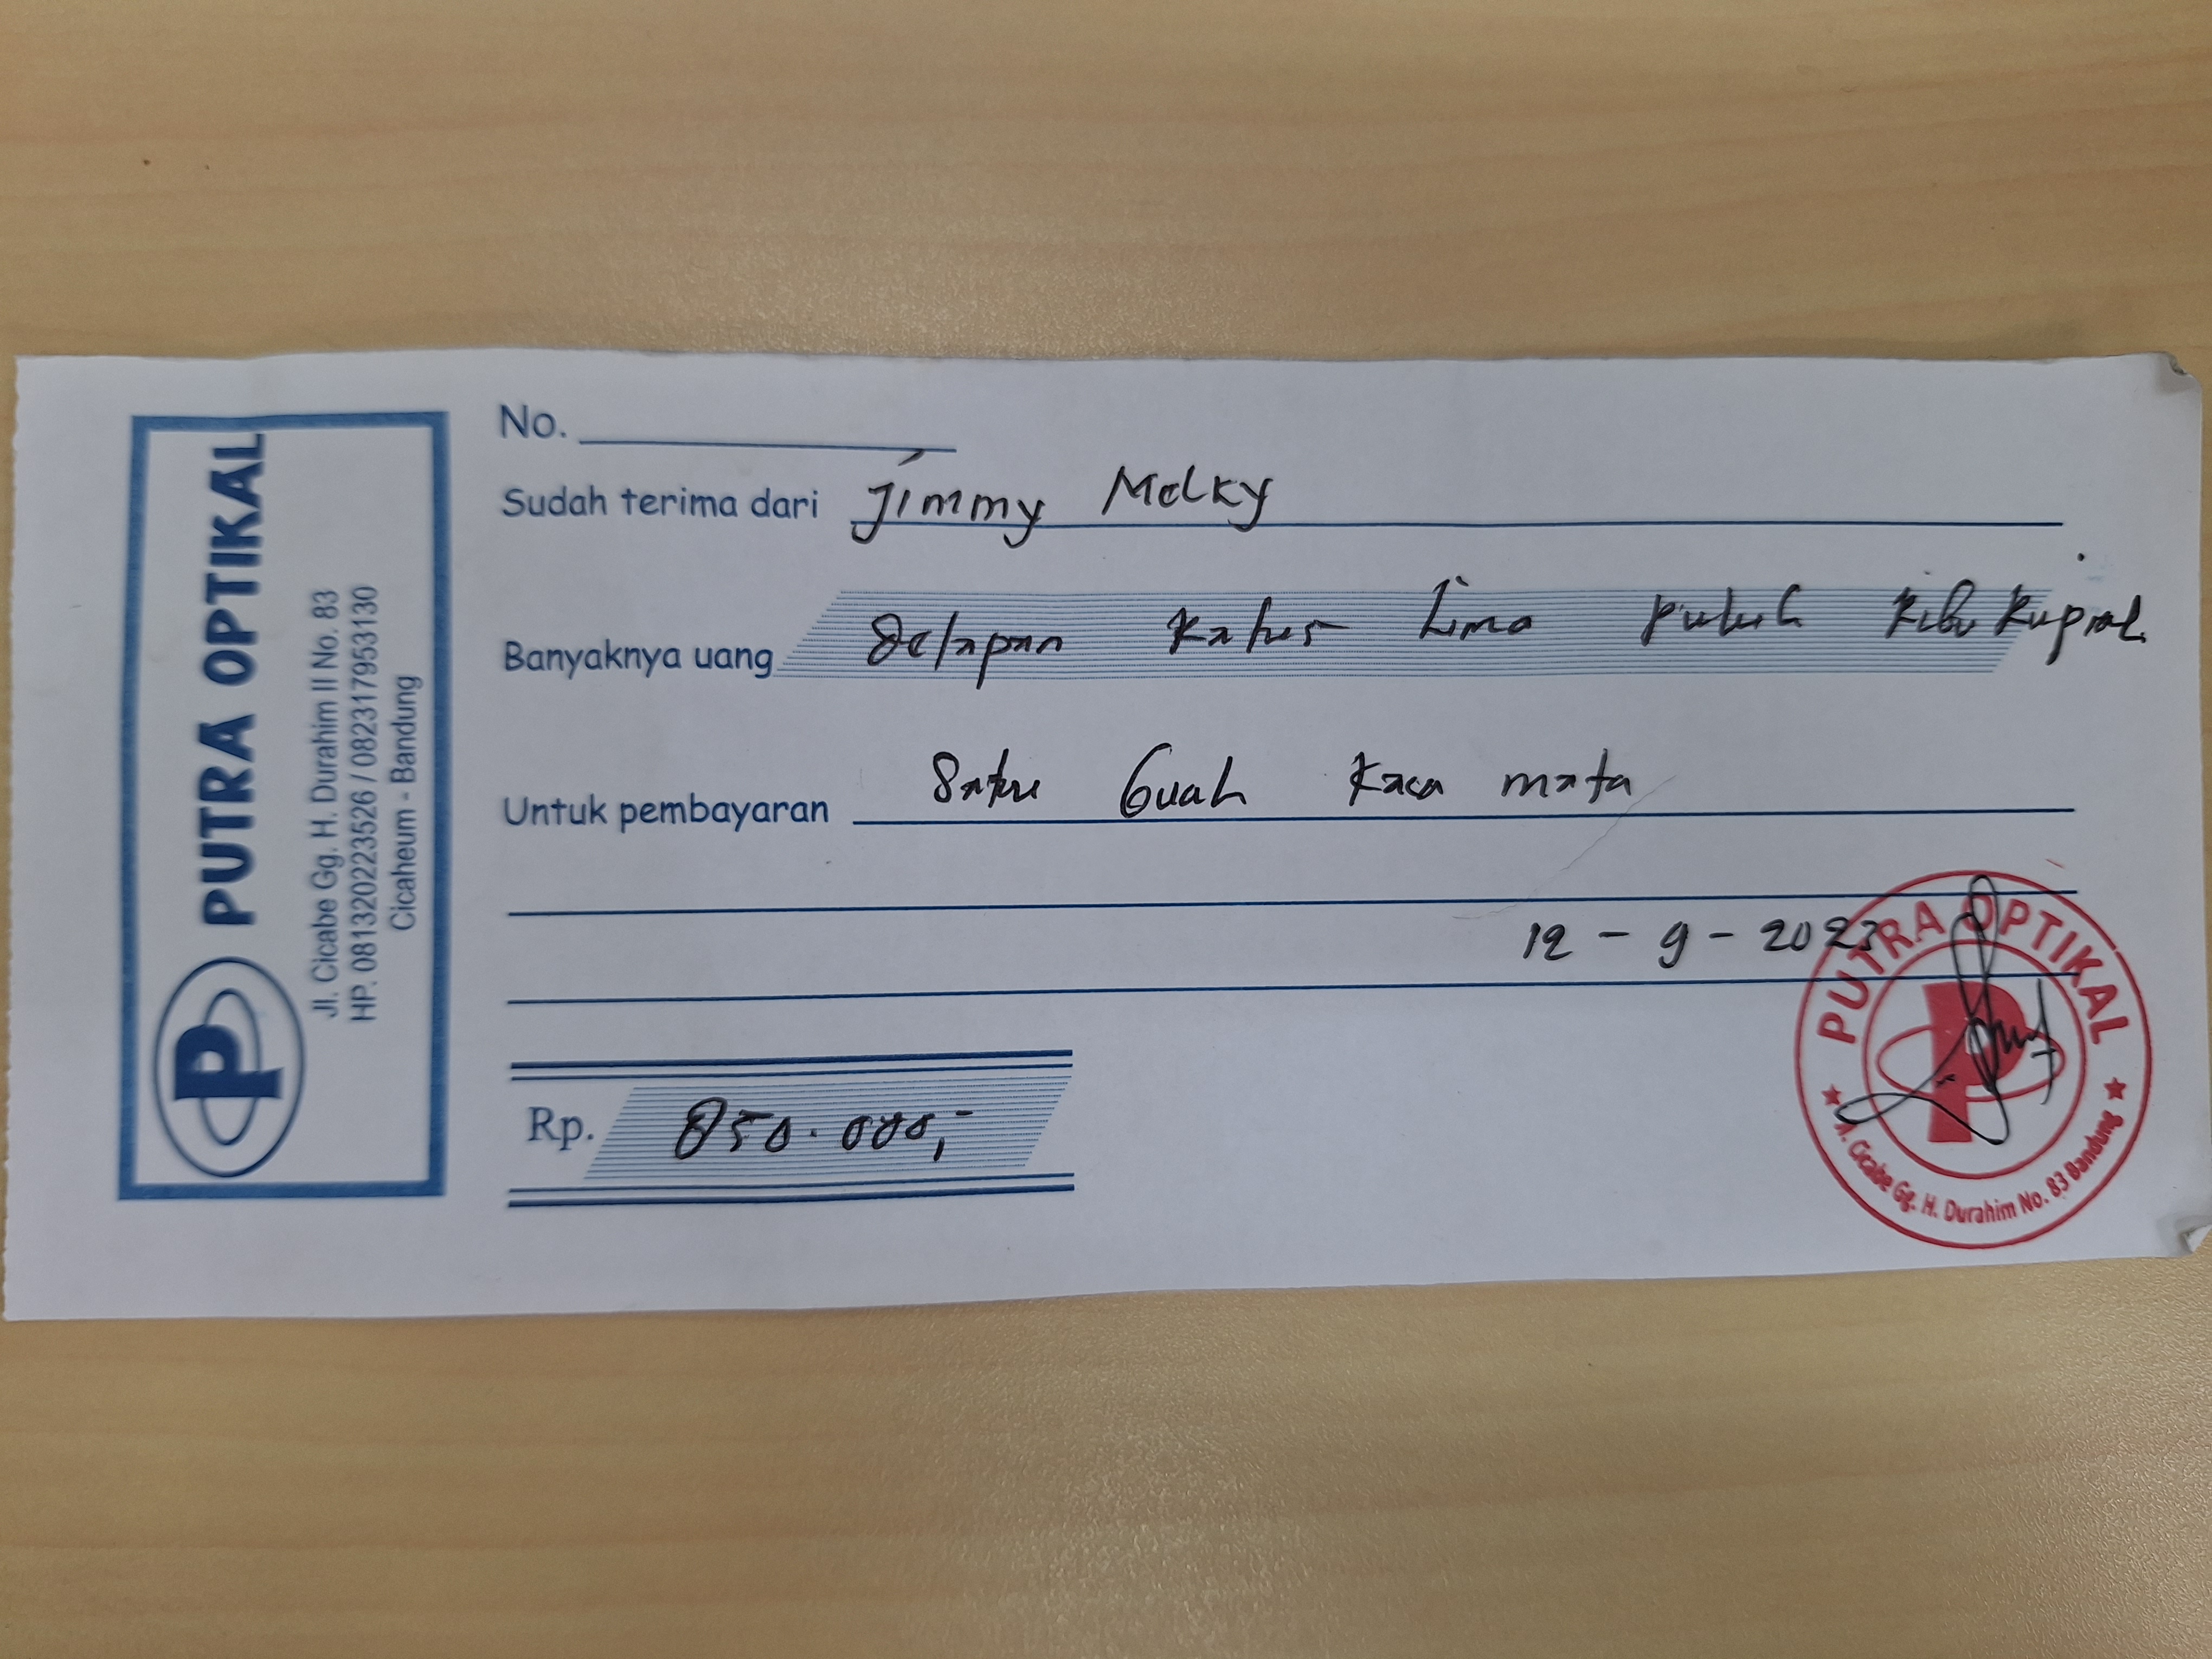 PUTRA OPTIKAL
Jl. Cicabe Gg. H. Durahim II No. 83
HP. 081320223526 / 082317953130
Cicaheum - Bandung
No.
Sudah terima dari Jimmy Melky
Banyaknya uang Delapan Ratus Lima puluh Ribu Rupiah
Untuk pembayaran Satu buah kaca mata
12 - 9 - 2023
Rp. 850.000,-
PUTRA OPTIKAL
Jl. Cicabe Gg. H. Durahim No. 83 Bandung